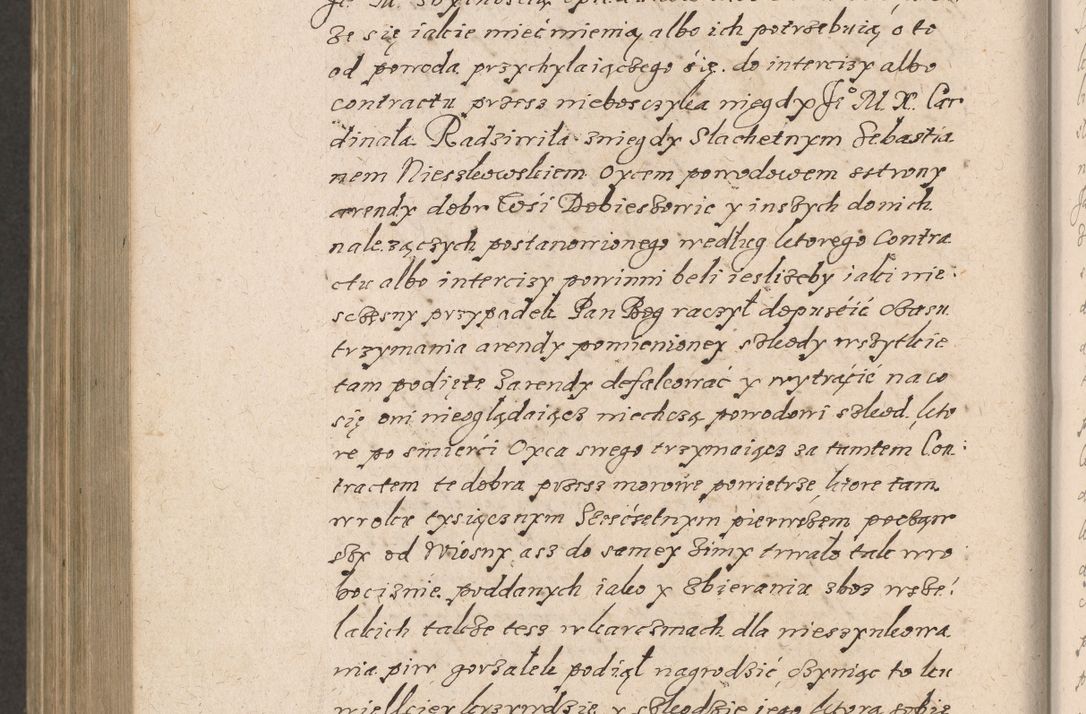 że się iakie mieć mienią albo ich potrzebuią o to
od powoda przychylaiączego się do intercizy albo
contractu przesz nieboszczyka niegdy Je° M. X. Car
dinała Radziwiła zniegdy Slachetnym Sebastia
nem Nieszkowskiem Oycem powodowem zstrony
arendy dobr Wsi Dobieszowic y inszych do nich
należączych postanowionego według ktorego Contra
ctu albo intercizy powinni beli iesliżeby iaki nie
sczęsny przypadek Pan Bog raczył dopuścić Obasu
trzymania arendy pomienioney szkody wszytkie
tam podięte zarendy defalcować y wytrącić na co
się oni nieoglądaiącz niechczą powodowi szkod kto
re po smierći Oyca swego trzymaiącz za tamtem Con
tractem te dobra przesz morowe powietrze ktore tam
wroku tysiącznym Sześćsetnym pierwszem począw
szy od Wiosny asz do samey zimy trwało tak wro
bociznie poddanych iako y zbieraniu zboż wsze
lakich także tesz wkarczmach dla nieszynkowa
nia piw gorzałek podiął nagrodzić, czyniąc to ku
wielkiey krzywdzie y szkodzie iego ktorą sobie